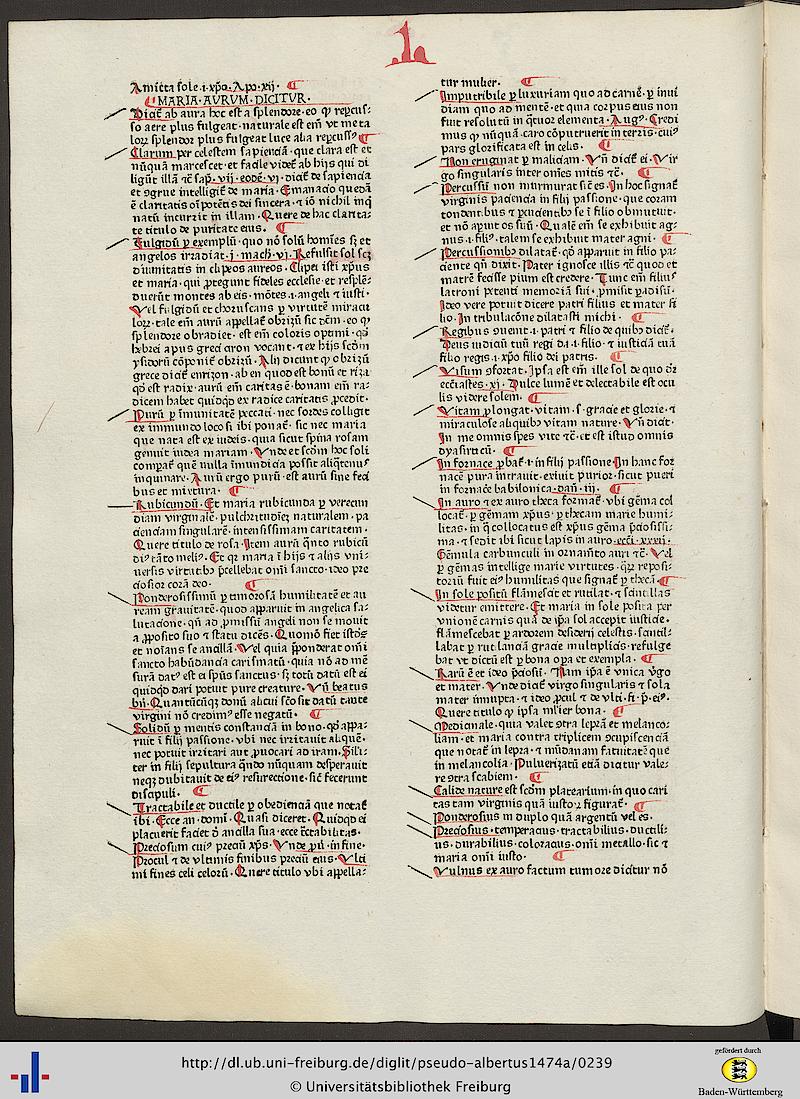 Amicta sole .i. xp̄o. Apo. xij.
MARIA AVRVM DICITVR.
Dicit͛ ab aura hoc est a splendore eo ꝙ repcus-
so aere plus fulgeat naturale est em̄ vt meta
lorꝝ splendor plus fulgeat luce alia repcussꝰ
Clarum per celestem sapienciā que clara est et
nūquā marcescet et facile videt͛ ab hijs qui di
ligūt illā
natū incurrit in illam. Quere de hac clarita-
te titulo de puritate eius.
Fulgidū ꝑ exemplū quo nō solū homīes sꝫ et
angelos irradiat .j. mach. vj. Refulsit sol scꝫ
diuinitatis in clipeos aureos. Clipei isti xp̄us
et maria qui ꝓtegunt fideles ecclesie et resplē-
duerūt montes ab eis. mōtes .i. angeli ⁊ iusti.
Vel fulgidū et choruscans ꝑ virtutē miracu
lorꝝ tale em̄ aurū appellat͛ obrizū
splendore obradiet est em̄ coloris optimi
hebrei apus greci aron vocant
ysidorū
grece dicit͛ enrizon ab en quod est bonū et riza
qd̄ est radix aurū em̄ caritas ē bonam em̄ ra-
dicem habet quidqd ex radice caritatis ꝓcedit.
Purū ꝑ īmunitatē peccati nec sordes colligit
ex immundo loco si ibi ponat͛ sic nec maria
que nata est ex iudeis quia sicut spina rosam
genuit iudea mariam. Vnde et scd̄m hoc soli
compat͛ quē nulla īmundicia possit aliqͣtenus
inquinare. Aurū ergo purū est aurū sine feci
bus et mixtura.
Rubicundū. Et maria rubicunda ꝑ verecun
diam virginalē pulchritudīeꝫ naturalem pa
cienciam singularē intensissimam caritatem.
Quere titulo de rosa. Item aurū qͣnto rubicū
diꝰ tāto meliꝰ. Et qꝛ maria ī hijs ⁊ alijs vni-
uersis virtutibꝰ p̄cellebat om̄i sancto ideo pre
ciosior corā deo.
Ponderosissimū ꝑ timorosā humilitatē et au
ream grauitatē quod apparuit in angelica sa-
lutacione
a ꝓposito suo ⁊ statu dicēs. Quomō fiet istd̄
et noīans se ancillā. Vel quia p̄ponderat om̄i
sancto habūdancia carismatū quia nō ad mē
surā datꝰ est ei sp̄us sanctus sꝫ totū datū est ei
quidqd dari potuit pure creature. Vn̄ beatus
bn̄. Quantūcūqꝫ donū alicui sc̄o sit datū tante
virgini nō credimꝰ esse negatū.
Solidū ꝑ mentis constanciā in bono qd̄ appa-
ruit ī filij passione vbi nec irritauit aliquē
nec potuit irritari aut ꝓuocari ad iram. Sili-
ter in filij sepultura qn̄do nūquam desperauit
neqꝫ dubitauit de eiꝰ resurectione sic̄ fecerunt
discipuli.
Tractabile et ductile ꝑ obedienciā que notat͛
ibi. Ecce an. domī. Quasi diceret. Quidqd ei
placuerit faciet ancilla sua ecce tractabilitas.
Preciosum cuiꝰ preciū xp̄s. Vnde ꝓu. in fine.
Procul ⁊ de vltimis finibus preciū eius. Vlti
mi fines celi celorū. Quere titulo vbi appella-
tur mulier.
Imputribile ꝑ luxuriam quo ad carnē ꝑ inui
diam quo ad mentē et quia corpus eius non
fuit resolutū in qͣtuor elementa. Augꝰ. Credi
mus ꝙ nūquā caro cōputruerit in terris cuiꝰ
pars glorificata est in celis.
Non eruginat͛ ꝑ maliciam. Vn̄ dicit͛ ei. Vir
go singularis inter om̄es mitis ⁊c̄.
Percussū non murmurat sic̄ es. In hoc signat͛
virginis paciencia in filij passione que coram
tondentibus ⁊ pcucientibꝰ se ī filio obmutuit
et nō aperuit os suū. Qualē em̄ se exhibuit ag-
nus .i. filiꝰ talem se exhibuit mater agni.
Percussionibꝰ dilatat͛ qd̄ apparuit in filio pa-
ciente qn̄ dixit. Pater ignosce illis ⁊c̄ quod et
matrē fecisse pium est credere. Tunc em̄ filiuˢ
latroni petenti memoriā sui ꝓmisit padisū.
Ideo vere potuit dicere patri filius et mater fi
lio. In tribulacōne dilatasti michi.
Regibus ꝯuenit .i. patri ⁊ filio de quibꝰ dicit͛.
Deus iudiciū tuū regi da .i. filio ⁊ iusticiā tuā
filio regis .i. xp̄o filio dei patris.
Visum ꝯfortat. Ipsa est em̄ ille sol de quo dr̄
ecc̄iastes. xj. Dulce lumē et delectabile est ocu
lis videre solem.
Vitam ꝓlongat vitam .s. gracie et glorie ⁊
miraculose aliquibꝰ vitam nature. Vn̄ dicit.
In me omnis spes vite ⁊c̄. et est istud omnis
dyasirticū.
In fornace ꝓbat͛ .i. in filij passione. In hanc for
nacē pura intrauit exiuit purior sicut pueri
in fornace babilonica. dan̄. iij.
In auro ⁊ ex auro theca format͛ vbi gēma col
locat͛ ꝑ gēmam xp̄us ꝑ thecam marie humi-
litas in q̄ collocatus est xp̄us gēma p̄ciosissi-
ma ⁊ sedit ibi sicut lapis in auro. ecc̄i. xxxij.
Gēmula carbunculi in ornamēto auri ⁊c̄. Vel
ꝑ gēmas intellige marie virtutes qꝝ reposi-
toriū fuit eiꝰ humilitas que signat͛ ꝑ thecā.
In sole positū flāmescit et rutilat ⁊ scintillas
videtur emittere. Et maria in sole posita per
vnionē carnis quā de ip̄a sol accepit iusticie
flāmescebat ꝑ ardorem desiderij celestis scintil-
labat ꝑ rutilanciā gracie multiplicis refulge
bat vt dictū est ꝑ bona oꝑa et exempla.
Rarū ē et ideo p̄ciosū. Nam ip̄a ē vnica v̄go
et mater. Vnde dicit͛ virgo singularis ⁊ sola
mater innupta ⁊ ideo ꝓcul ⁊ de vlti. fi. p̄. eiꝰ.
Quere titulo ꝙ ipsa mulier bona.
Medicinale quia valet ꝯtra leprā et melanco-
liam et maria contra triplicem ꝯcupiscenciā
que notat͛ in lepra ⁊ mūdanam fatuitatē que
in melancolia. Puluerizatū etiā dicitur vale-
re ꝯtra scabiem.
Calide nature est scd̄m platearium in quo cari
tas tam virginis quā iustoꝝ figurat͛.
Ponderosius in duplo quā argentū vel es.
Preciosius temperacius tractabilius ductili-
us durabilius coloracius om̄i metallo sic ⁊
maria om̄i iusto.
Vulnus ex auro factum tumore dicitur nō
http://dl.ub.uni-freiburg.de/diglit/pseudo-albertus1474a/0239
© Universitätsbibliothek Freiburg
gefördert durch
Baden-Württemberg